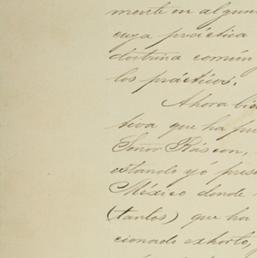 mente en algun
cuya práctica
doctrina común
los prácticos.
Ahora bie
tiva que ha pu
Señor Ráscon,
estando yó pres
México donde
(tantos) que ha
cionado exhorto,